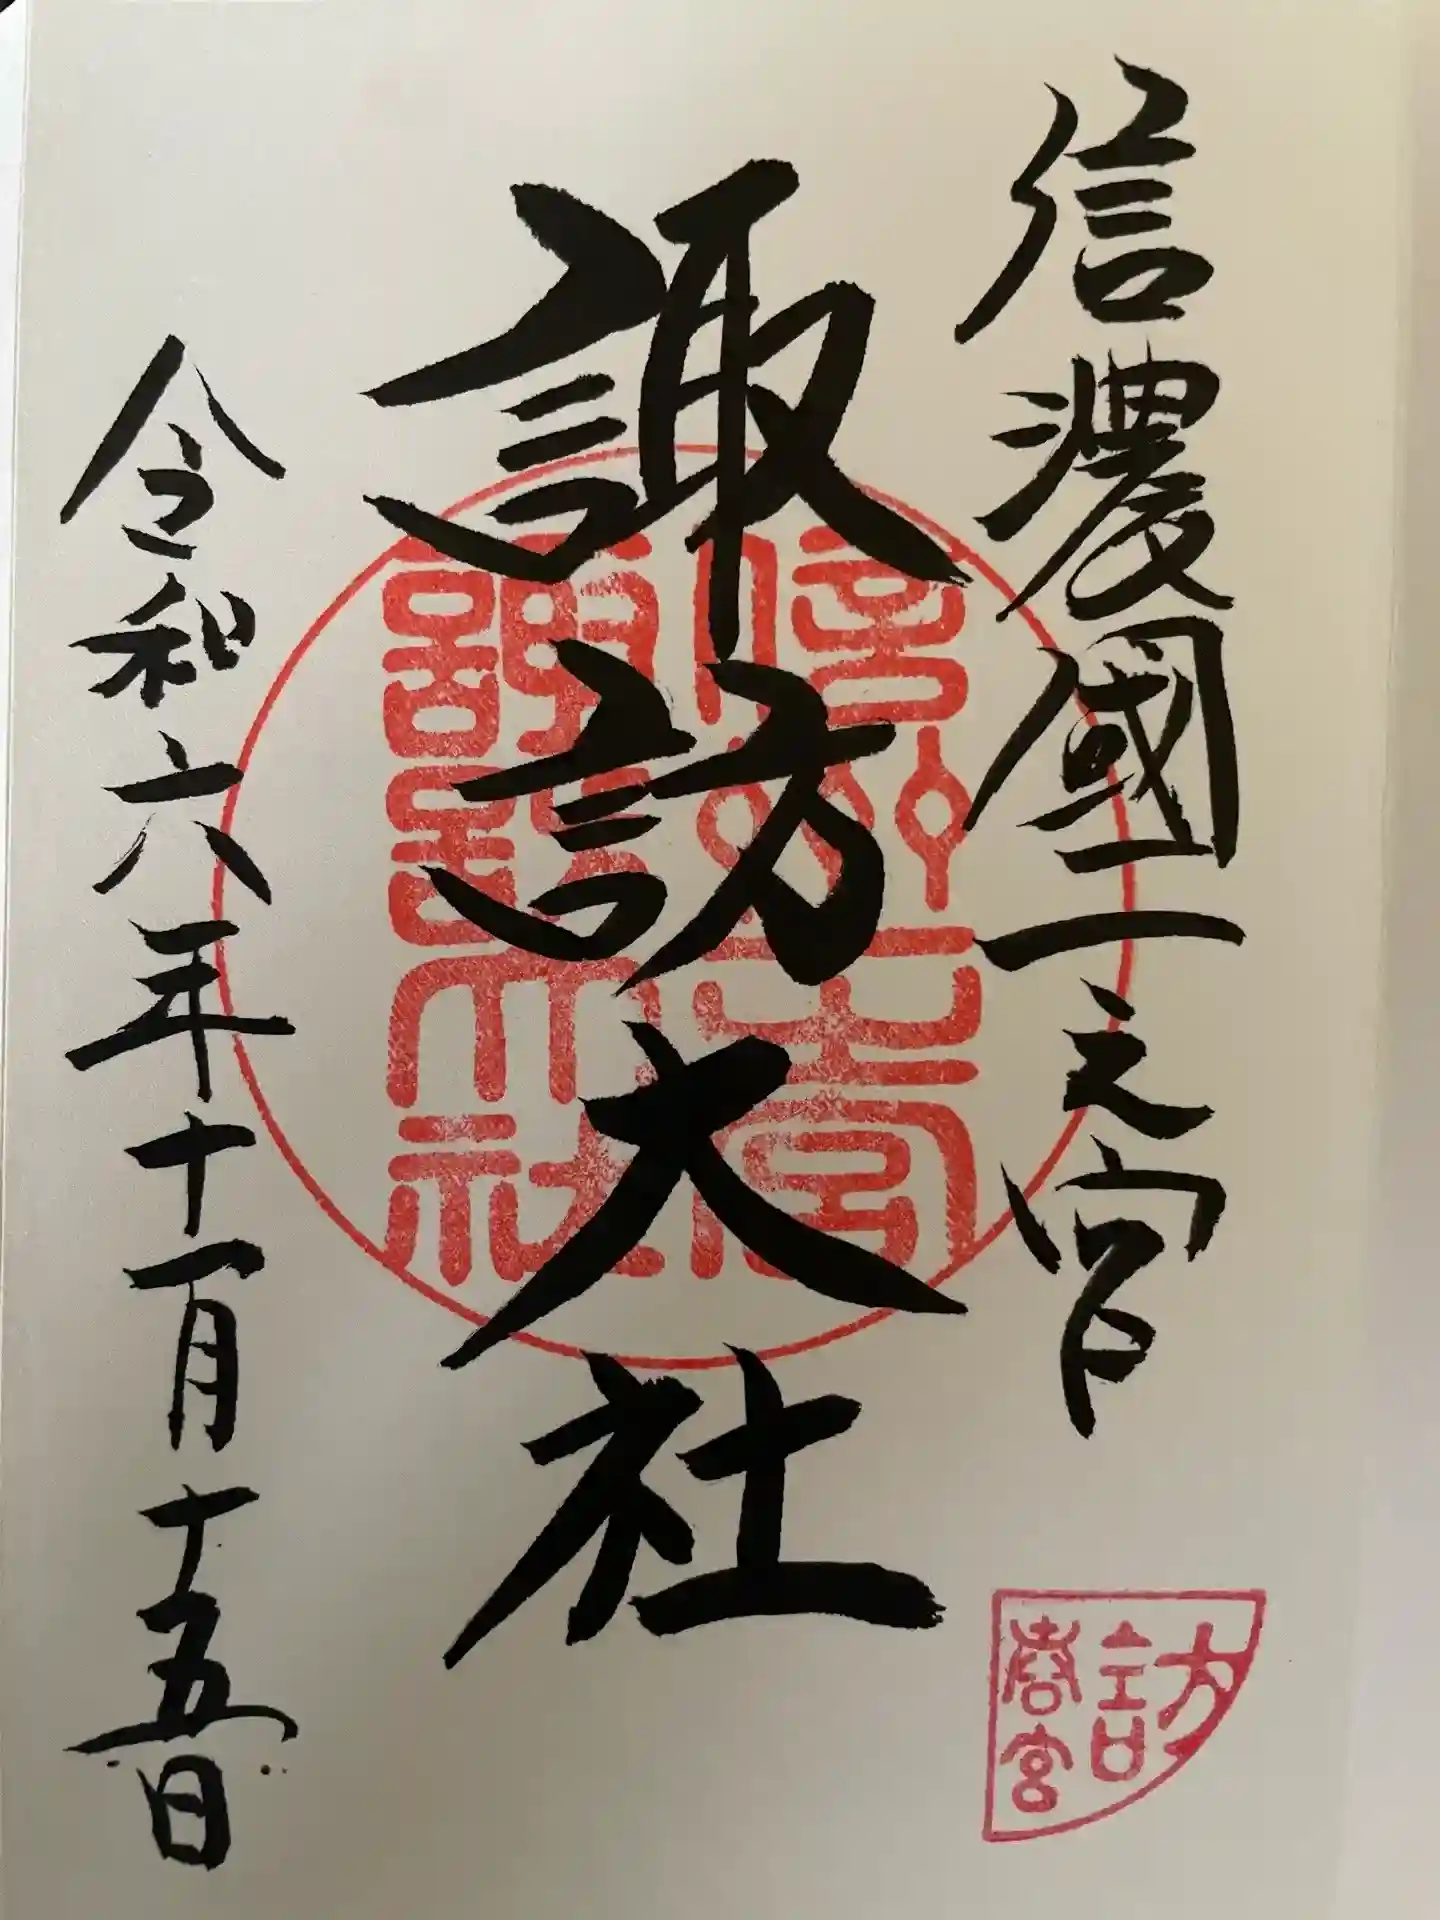 信濃國一之宮
諏訪大社
令和六年十一月十五日
信州一之宮
諏訪大社
訪
春宮